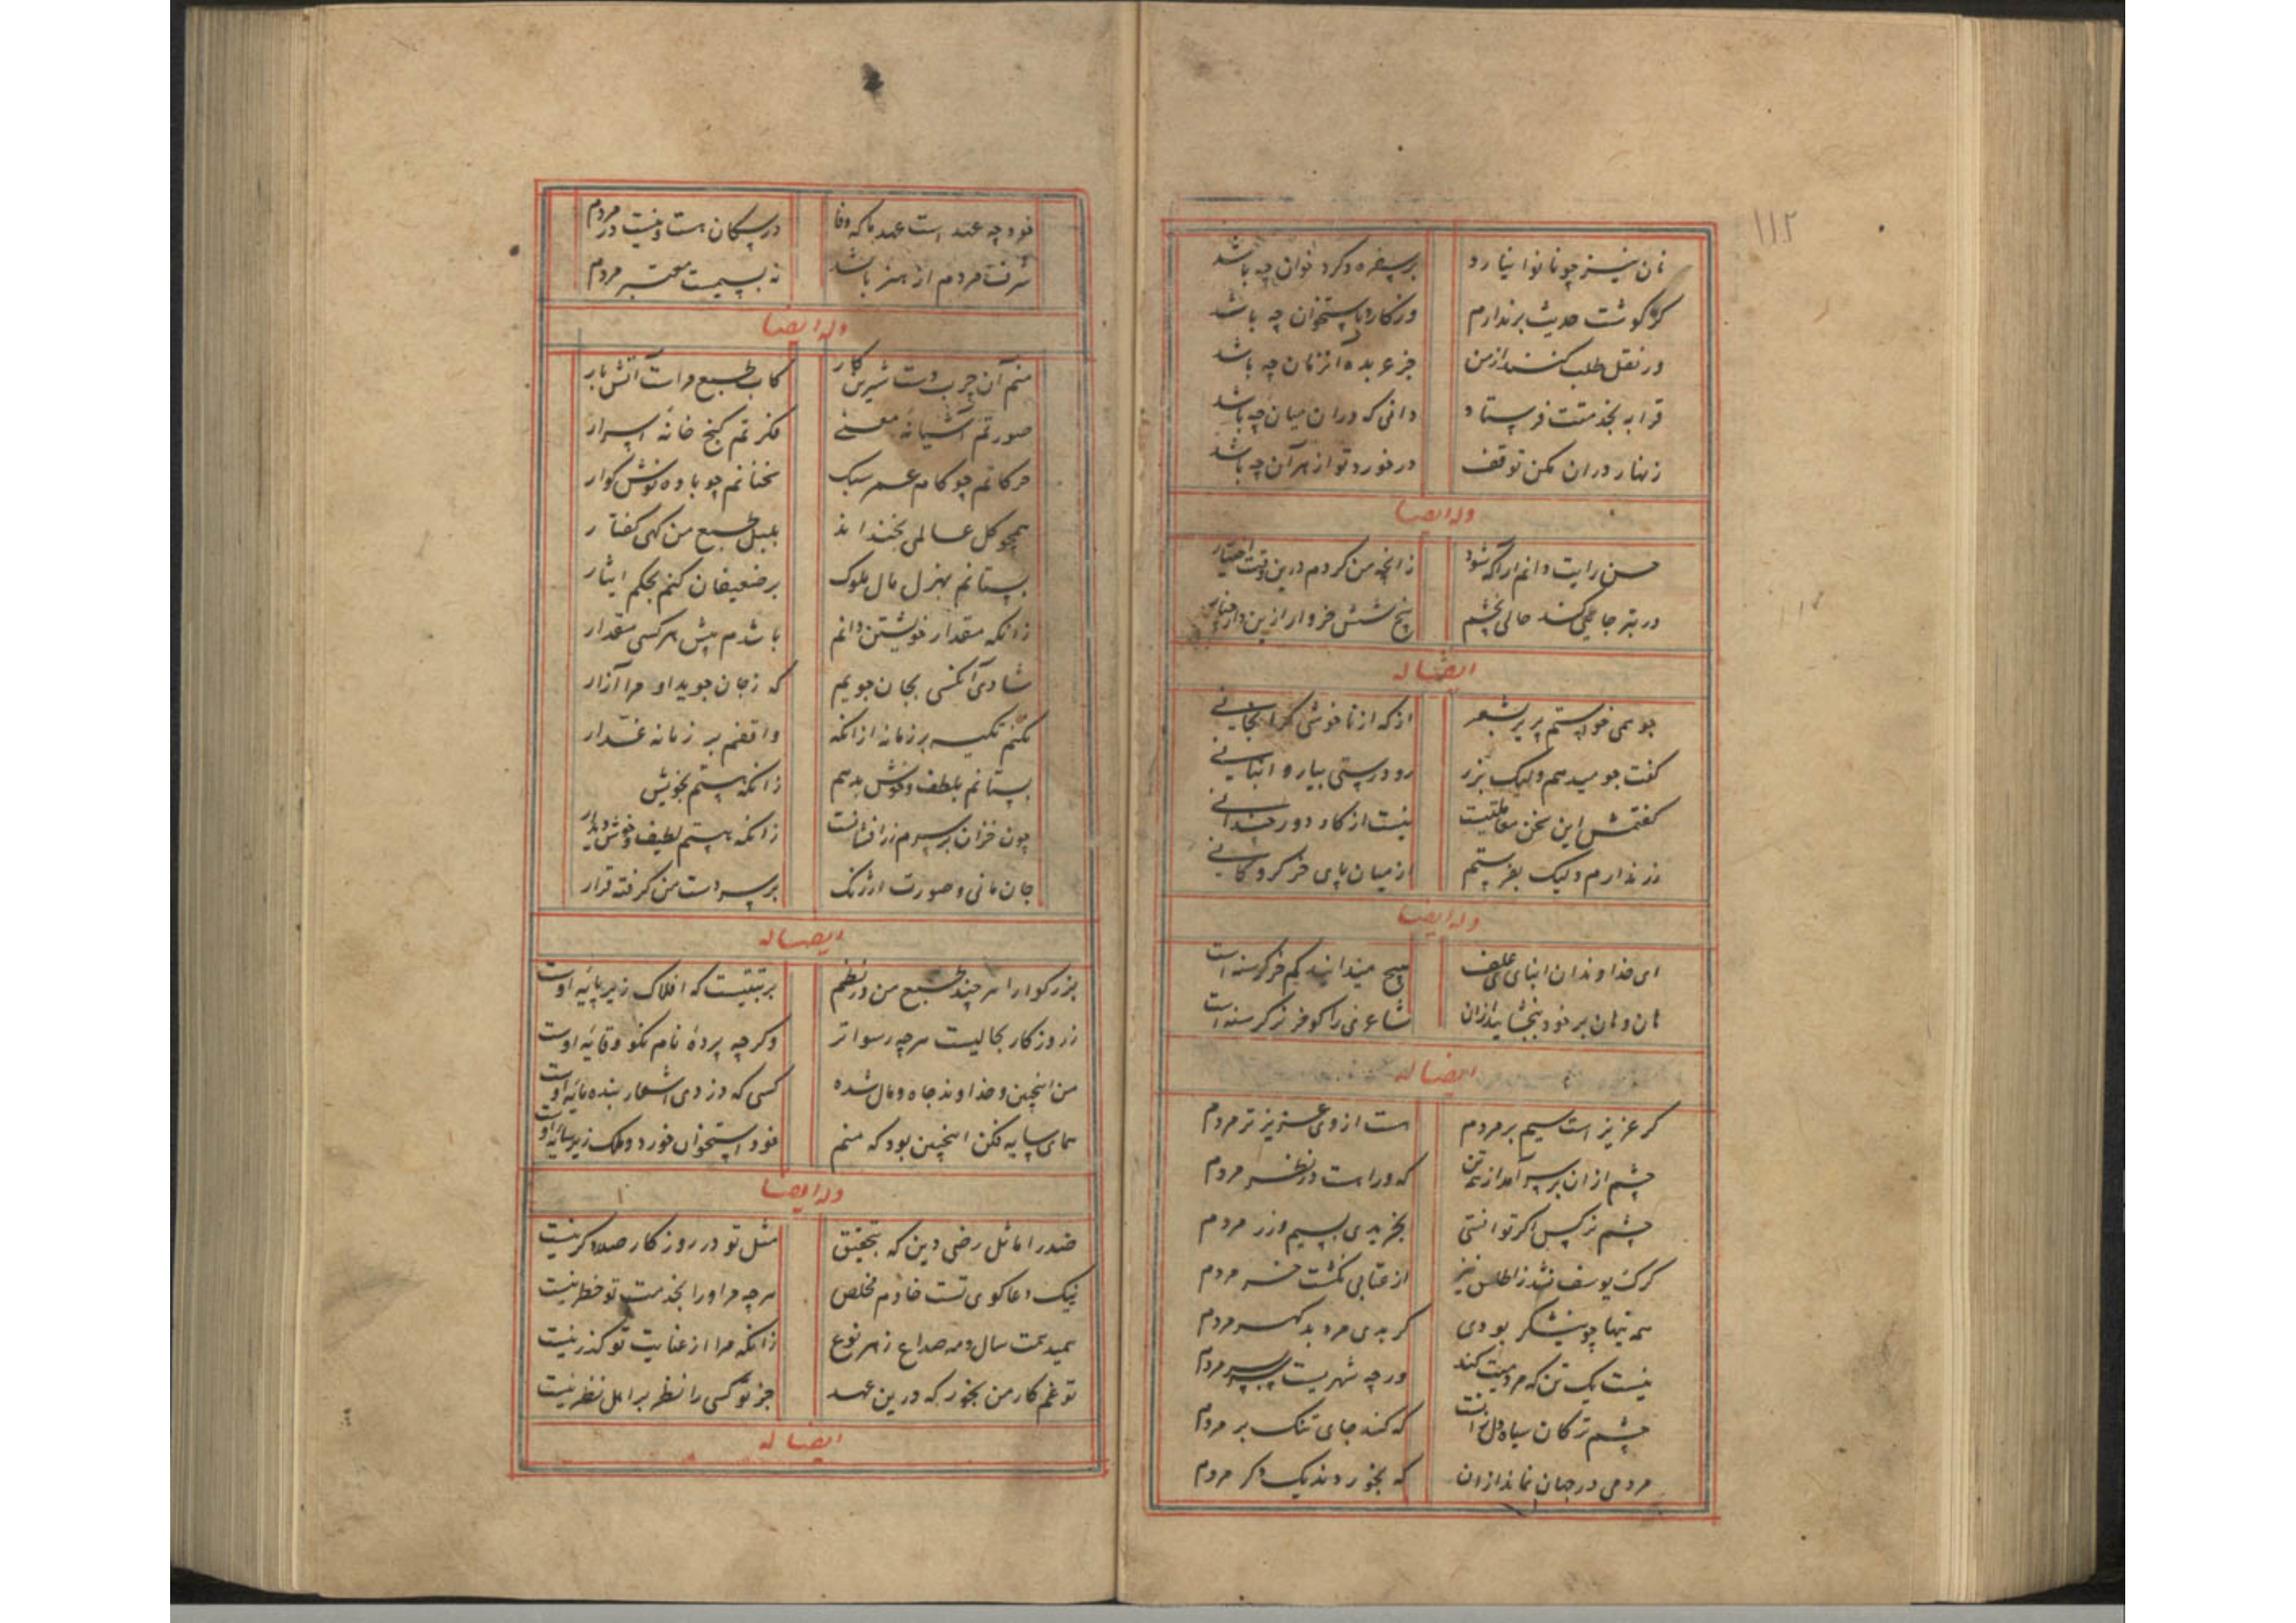 ۱۱۲
نان نیز چو نانوا نیارد
بر سفره و کرد خوان چه باشد
کز گوشت حدیث بر ندارم
وز کارد باستخوان چه باشد
ور نقل طلب کنند از من
جز عربده آنزمان چه باشد
قرابه بخدمتت فرستاد
دانی که در ان میان چه باشد
زنهار در ان مکن توقف
در خورد تو از هر آن چه باشد
وله ایضا
حسن رایت دانم ار اگه شود
زانچه من کردم درین وقت اختیار
در بتر جایی کند حالی بخشم
پنج شش خروار ازین
ایضا له
جو همی خواستم پریر بشعر
گفت جو میدهم ولیک بزر
رو درستی بیار و انبانی
کفتمش این سخن
نیست از کار دور چندانی
زر ندارم ولیک بفرستم
از میان پای خر کروکانی
وله ایضا
ای خداوندان ابنای علف
هیچ میدانید کم خر کرسنه است
هان و هان بر خود ببخشایید ازان
شاعری را کو خر کرسنه است
ایضا له
کر عزیز است سیم بر مردم
است از وی عزیزتر مردم
چشم از ان بر سر آمد از همه تن
که وراست در نظر مردم
چشم نرکس اکر توانستی
بخریدی بسیم و زر مردم
کرک یوسف نشد ز اطلس نیز
از عتابی نکشت خر مردم
همه تنها چو نیشکر بودی
کر بدی مرد بد کهر مردم
نیست یک تن که مردمیت کند
ورچه شهریست سربسر مردم
چشم ترکان سیاه دل زانست
که کند جای تنک بر مردم
مردمی در جهان نماند ازان
که بخوردند یک دکر مردم
خود چه عهد است عهد ما که وفا
در سکان هست و نیست در مردم
شرف مردم از هنر باشد
نه بسیمست معتبر مردم
وله ایضا
منم آن چرب دست شیرین کار
کاب طبع مراست آتش بار
صورتم آشیانه معنی
فکرتم کنج خانه اسرار
حرکاتم چو کام عمر سبک
سخنانم چو باده نوش کوار
همچو کل عالمی بخنداند
بلبل طبع من کهی کفتار
بستانم بهزل مال ملوک
بر ضعیفان کنم بحکم ایثار
زانکه مقدار خویشتن دانم
باشدم پیش هر کسی مقدار
شادی آنکسی بجان جویم
که ز جان جوید او مرا آزار
نکنم تکیه بر زمانه ازانکه
واقفم بر زمانه غدار
بستانم بلطف و خوش بدهم
زانکه هستم بخویش
چون خزان بر سرم زر افشانست
زانکه هستم لطیف و خوش دیدار
جان مانی و صورت ارژنک
بر سر دست من کرفته قرار
ایضا له
بزرکوارا هر چند طبع من در نظم
برتبتیست که افلاک زیر پایه اوست
ز روزکار بحالیست هرچه رسواتر
وکرچه پرده نام نکو وقایه اوست
من اینچنین و خداوند جاه و مال شده
کسی که دزدی اشعار بنده مایه اوست
همای سایه فکن اینچنین بود که منم
خود استخوان خورد و ملک زیر سایه اوست
وله ایضا
صدر اماثل رضی دین که بتحقیق
مثل تو در روزکار صدر دکر نیست
نیک دعاکوی تست خادم مخلص
هرچه مر او را بخدمت تو خطر نیست
میدهمت سال و مه صداع ز هر نوع
زانکه مرا از عنایت تو کذر نیست
تو غم کار من بخور که درین عهد
جز تو کسی را نظر بر اهل نظر نیست
ایضا له